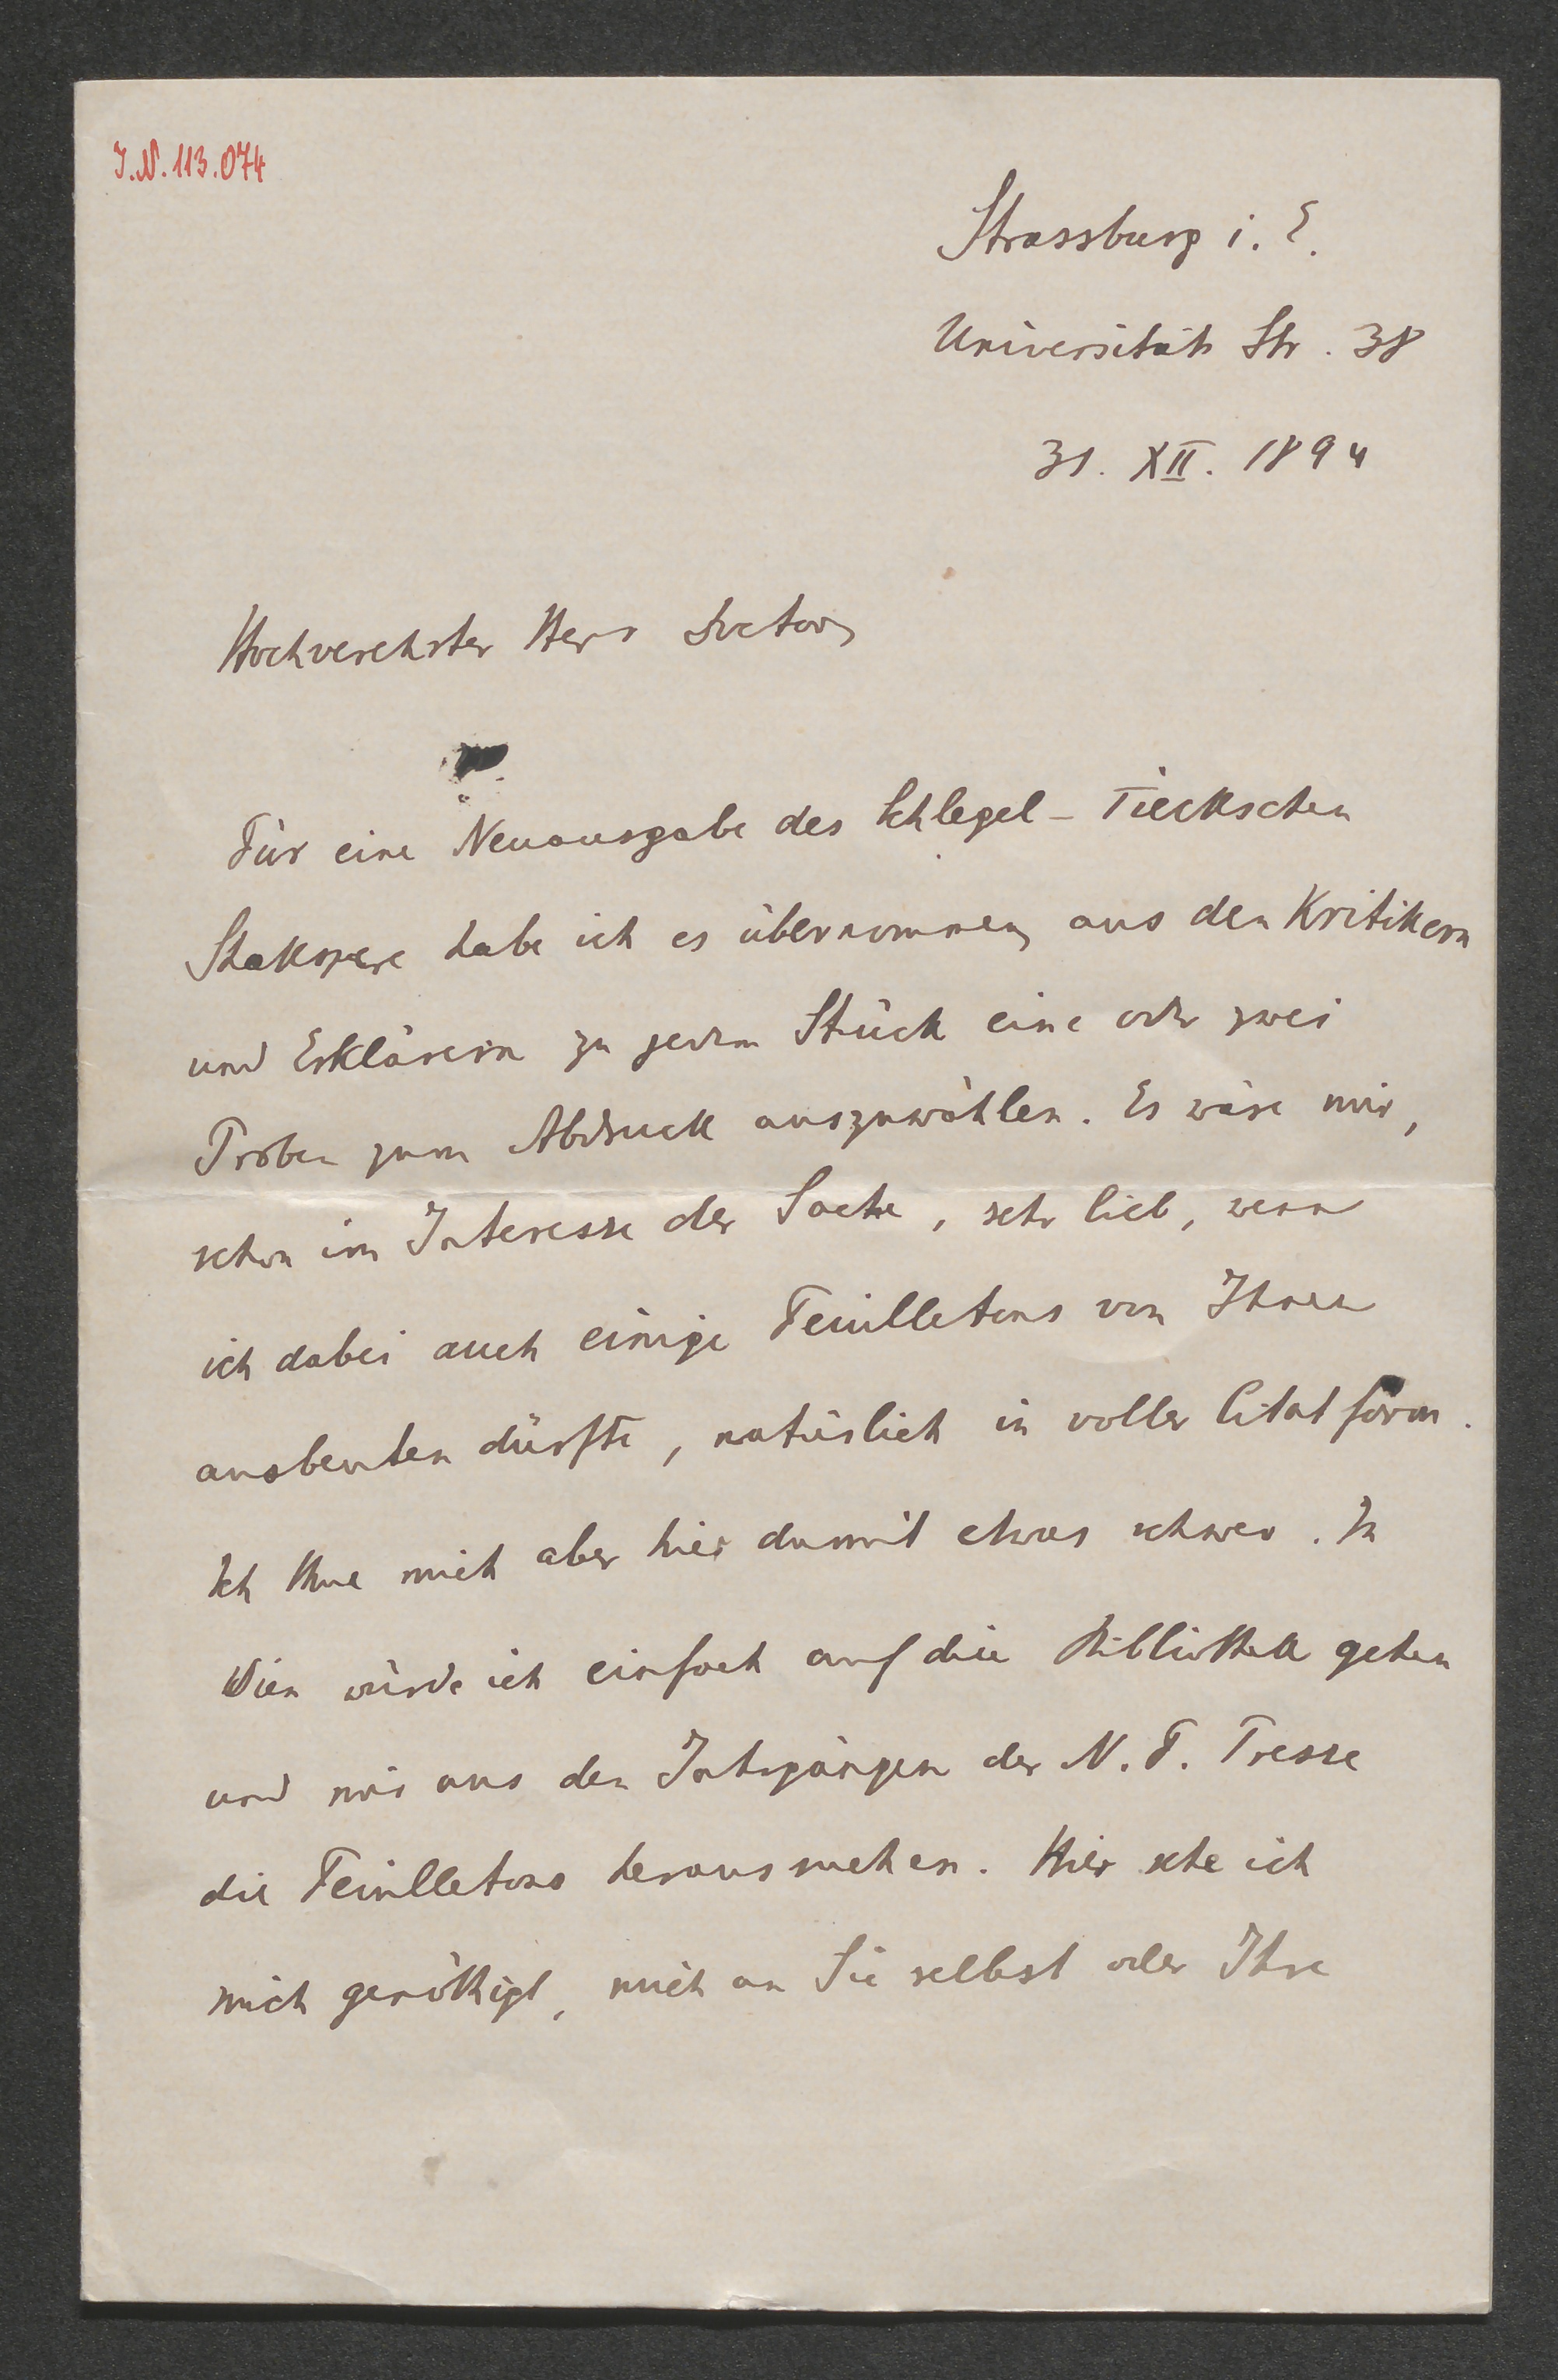 J.N. 113.074
Strassburg i. E.
Universität Str. 38
31. XII. 1894
Hochverehrter Herr Doctor,
Für eine Neuausgabe des Schlegel-Tieckschen
Shakspere habe ich es übernommen, aus den Kritikern
und Erklärern zu jedem Stück eine oder zwei
Proben zum Abdruck auszuwählen. Es wäre mir,
schon im Interesse der Sache, sehr lieb, wenn
ich dabei auch einige Feuilletons von Ihnen
ausbeuten dürfte, natürlich in voller Citatform.
Ich thue mich aber hier damit etwas schwer. In
Wien würde ich einfach auf die Bibliothek gehen
und mir aus den Jahrgängen der N. F. Presse
die Feuilletons heraussuchen. Hier sehe ich
mich genöthigt, mich an Sie selbst oder Ihre